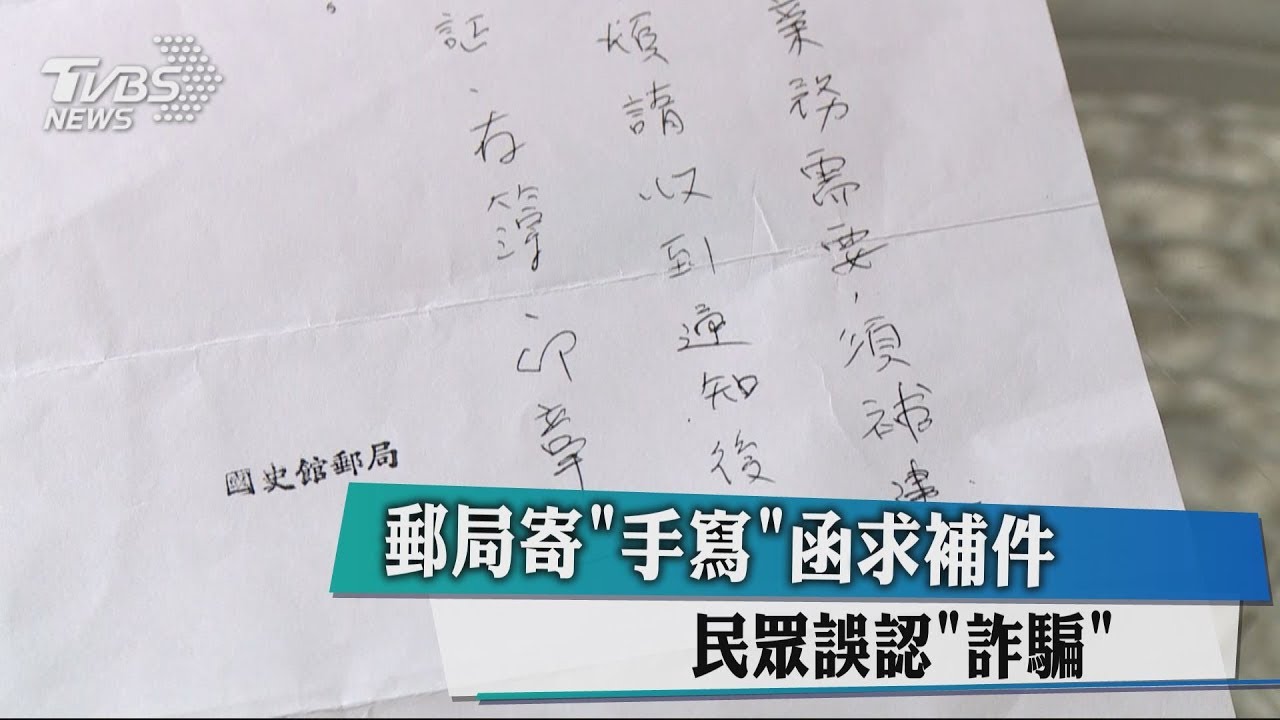 TVBS
NEWS
業務需要，須補
煩請收到通知後
証、存簿、印章
國史館郵局
郵局寄"手寫"函求補件
民眾誤認"詐騙"